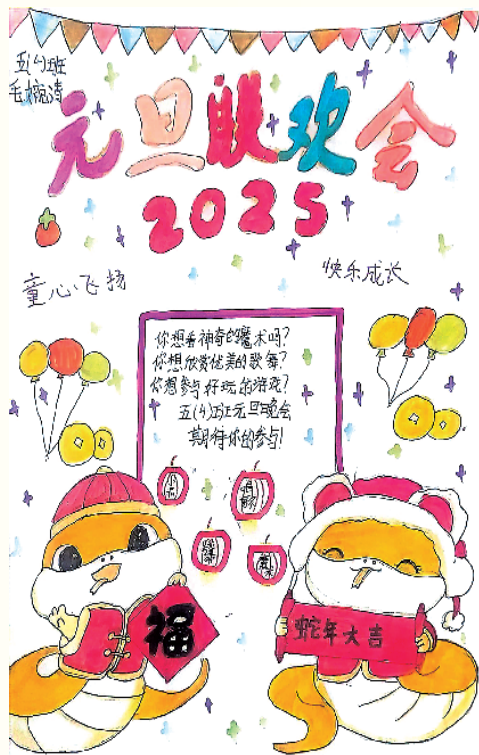 五(4)班
毛婉清
元旦联欢会
2025
童心飞扬
快乐成长
你想看神奇的魔术吗?
你想欣赏优美的歌舞?
你想参与好玩的游戏?
五(4)班元旦晚会
期待你的参与!
福
蛇年大吉